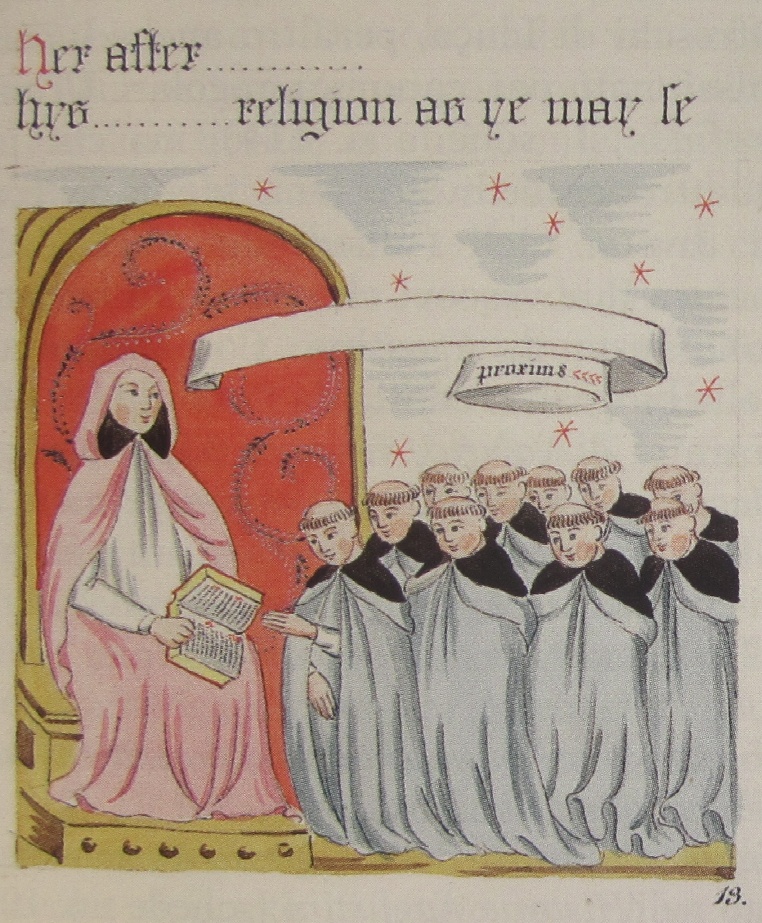 Her after............
hys..........religion as ye may se
proxims <<<<
13.